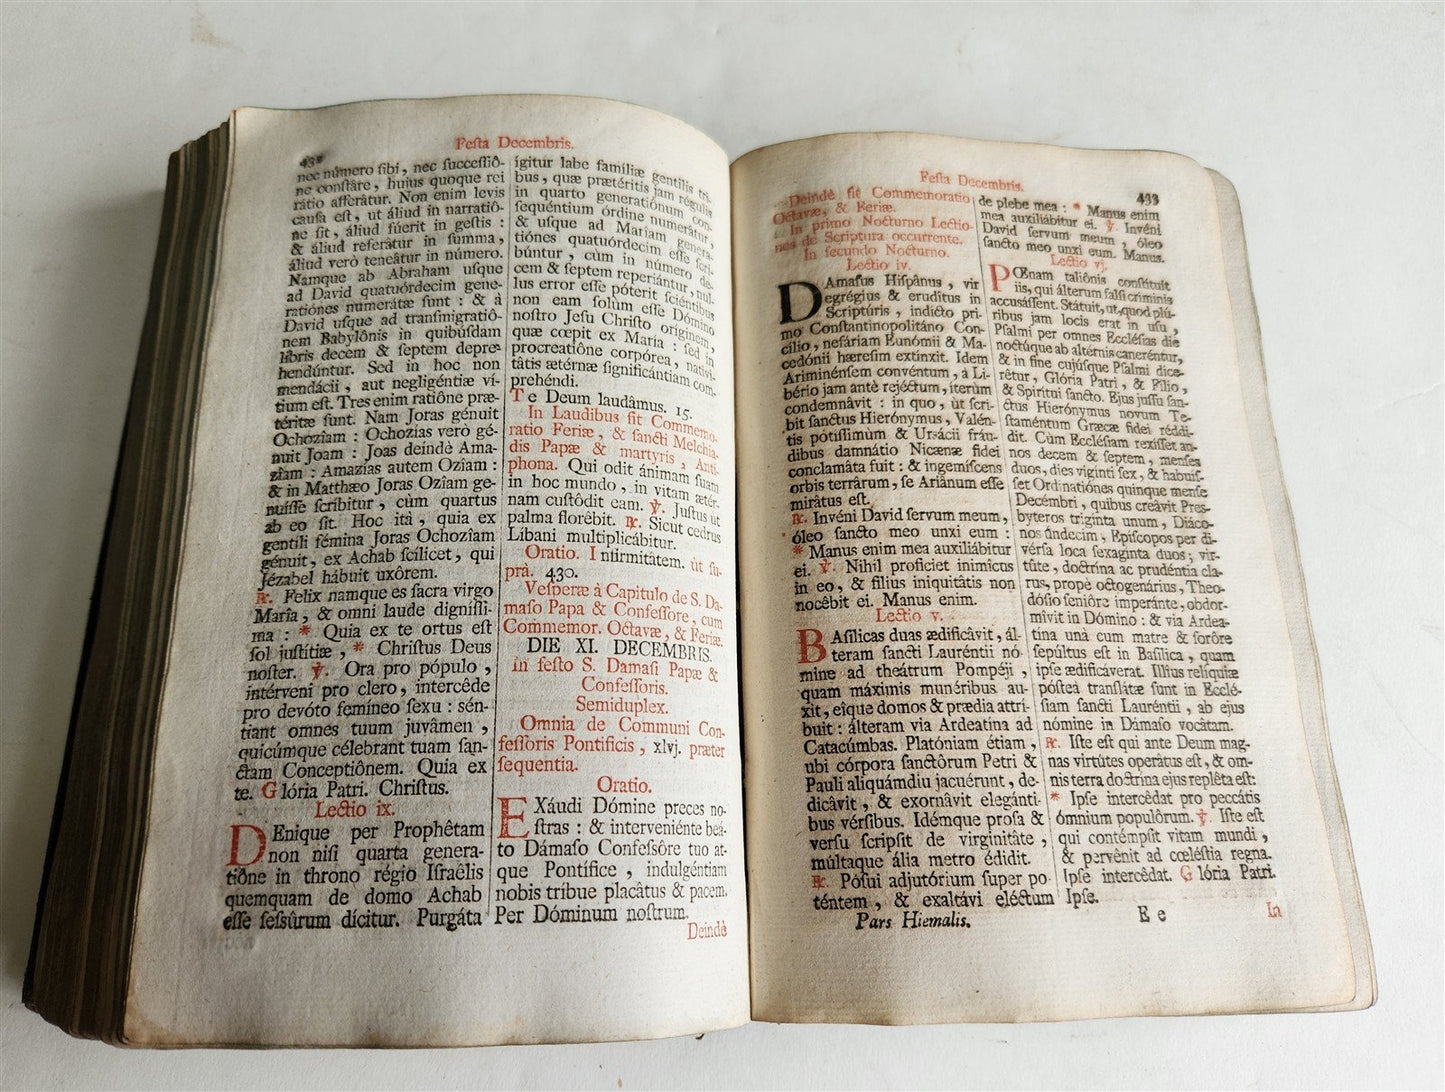 432
Feſta Decembris.
nec número ſibi, nec ſucceſſiô-
ne conſtâre, huius quoque rei
rátio afferâtur. Non enim levis
cauſa eſt, ut áliud in narratiô-
ne ſit, áliud fúerit in geſtis :
& áliud referâtur in ſumma,
áliud verò teneâtur in número.
Namque ab Abraham uſque
ad David quatuórdecim gene-
ratiónes numerátæ ſunt : & à
David uſque ad tranſmigratiô-
nem Babylônis in quibúſdam
libris decem & ſeptem depre-
hendúntur. Sed in hoc non
mendácii, aut negligéntiæ ví-
tium eſt. Tres enim ratiône præ-
téritæ ſunt. Nam Joras génuit
Ochozîam : Ochozías verò gé-
nuit Joam : Joas deindè Ama-
zîam : Amazías autem Ozîam :
& in Matthæo Joras Ozîam ge-
nuíſſe ſcribitur, cùm quartus
ab eo ſit. Hoc ità, quia ex
gentili fémina Joras Ochozîam
génuit, ex Achab ſcílicet, qui
Jézabel hábuit uxôrem.
℟. Felix namque es ſacra virgo
María, & omni laude digníſſi-
ma : * Quia ex te ortus eſt
ſol juſtítiæ, * Chriſtus Deus
noſter. ℣. Ora pro pópulo,
intérveni pro clero, intercêde
pro devóto femíneo ſexu : sén-
tiant omnes tuum juvâmen,
quicúmque célebrant tuam ſan-
ctam Conceptiônem. Quia ex
te. Glória Patri. Chriſtus.
Lectio ix.
DEnique per Prophêtam
non niſi quarta genera-
tiône in throno régio Iſraêlis
quemquam de domo Achab
eſſe ſeſsûrum dícitur. Purgáta
ígitur labe famíliæ gentilis tri-
bus, quæ prætéritis jam régulis
in quarto generatiónum con-
ſequéntium órdine numerâtur,
& uſque ad Mariam genera-
tiónes quatuórdecim eſſe ſcri-
búntur, cùm in número de-
cem & ſeptem reperiántur, nul-
lus error eſſe póterit ſciéntibus
non eam ſolùm eſſe Dómino
noſtro Jeſu Chriſto oríginem,
quæ cœpit ex María : ſed in
procreatiône corpórea, nativi-
tâtis ætérnæ ſignificántiam com-
prehéndi.
Te Deum laudâmus. 15.
In Laudibus fit Commemo-
ratio Feriæ, & ſancti Melchia-
dis Papæ & martyris, Anti-
phona. Qui odit ánimam ſuam
in hoc mundo, in vitam ætér-
nam cuſtôdit eam. ℣. Juſtus ùt
palma florêbit. ℟. Sicut cedrus
Líbani multiplicábitur.
Oratio. Infirmitâtem. ùt ſu-
prà. 430.
Veſperæ à Capitulo de S. Da-
maſo Papa & Confeſſore, cum
Commemor. Octavæ, & Feriæ.
DIE XI. DECEMBRIS.
in feſto S. Damaſi Papæ &
Confeſſoris.
Semiduplex.
Omnia de Communi Con-
feſſoris Pontificis, xlvj. præter
ſequentia.
Oratio.
EXáudi Dómine preces no-
ſtras : & interveniénte beá-
to Dámaſo Confeſſôre tuo at-
que Pontífice, indulgéntiam
nobis tríbue placâtus & pacem.
Per Dóminum noſtrum.
Deindè
Feſta Decembris.
433
Deindè fit Commemoratio
Octavæ, & Feriæ.
In primo Nocturno Lectio-
nes de Scriptura occurrente.
In ſecundo Nocturno.
Lectio iv.
DAmaſus Hiſpânus, vir
egrégius & eruditus in
Scriptúris, indícto pri-
mo Conſtantinopolitáno Con-
cílio, nefáriam Eunómii & Ma-
cedónii hæreſim extínxit. Idem
Ariminénſem convéntum, à Li-
bério jam antè rejéctum, iterùm
condemnâvit : in quo, ùt ſcri-
bit ſanctus Hierónymus, Valén-
tis potíſſimùm & Urſácii fráu-
dibus damnátio Nicænæ fidei
conclamâta fuit : & ingemíſcens
orbis terrârum, ſe Ariânum eſſe
mirâtus eſt.
℟. Invéni David ſervum meum,
óleo ſancto meo unxi eum :
* Manus enim mea auxiliábitur
ei. ℣. Nihil profíciet inimícus
in eo, & fílius iniquitâtis non
nocêbit ei. Manus enim.
Lectio v.
BAſílicas duas ædificâvit, ál-
teram ſancti Lauréntii nó-
mine ad theátrum Pompéji,
quam máximis munéribus au-
xit, eîque domos & prædia attri-
buit : álteram via Ardeatína ad
Catacúmbas. Platóniam étiam,
ubi córpora ſanctôrum Petri &
Pauli aliquámdiu jacuérunt, de-
dicâvit, & exornâvit elegánti-
bus vérſibus. Idémque proſa &
verſu ſcripſit de virginitâte,
múltaque ália metro édidit.
℟. Póſui adjutórium ſuper po-
téntem, & exaltávi eléctum
Pars Hiemalis.
de plebe mea : * Manus enim
mea auxiliábitur ei. ℣. Invéni
David ſervum meum, óleo
ſancto meo unxi eum. Manus.
Lectio vj.
POEnam taliônis conſtítuit
iis, qui álterum falſi críminis
accusáſſent. Státuit, ut, quod plú-
ribus jam locis erat in uſu,
Pſalmi per omnes Eccléſias die
noctúque ab altérnis caneréntur,
& in fine cujúſque Pſalmi dice-
rêtur, Glória Patri, & Fílio,
& Spirítui ſancto. Ejus juſſu ſan-
ctus Hierónymus novum Te-
ſtaméntum Græcæ fídei réddi-
dit. Cùm Eccléſiam rexíſſet an-
nos decem & ſeptem, menſes
duos, dies viginti ſex, & habuíſ-
ſet Ordinatiónes quinque menſe
Decémbri, quibus creávit Pres-
byteros triginta unum, Diáco-
nos úndecim, Epíſcopos per di-
vérſa loca ſexaginta duos; vir-
tûte, doctrína ac prudéntia cla-
rus, propè octogenárius, Theo-
dóſio ſeniôre imperánte, obdor-
mívit in Dómino : & via Ardea-
tína unà cum matre & ſorôre
ſepúltus eſt in Baſílica, quam
ipſe ædificáverat. Illíus relíquiæ
póſteà tranſlátæ ſunt in Ecclé-
ſiam ſancti Lauréntii, ab ejus
nómine in Dámaſo vocâtam.
℟. Iſte eſt qui ante Deum mag-
nas virtútes operâtus eſt, & om-
nis terra doctrína ejus replêta eſt:
* Ipſe intercêdat pro peccátis
ómnium populôrum. ℣. Iſte eſt
qui contémpſit vitam mundi,
& pervênit ad cœléſtia regna.
Ipſe intercêdat. Glória Patri.
Ipſe.
E e
In